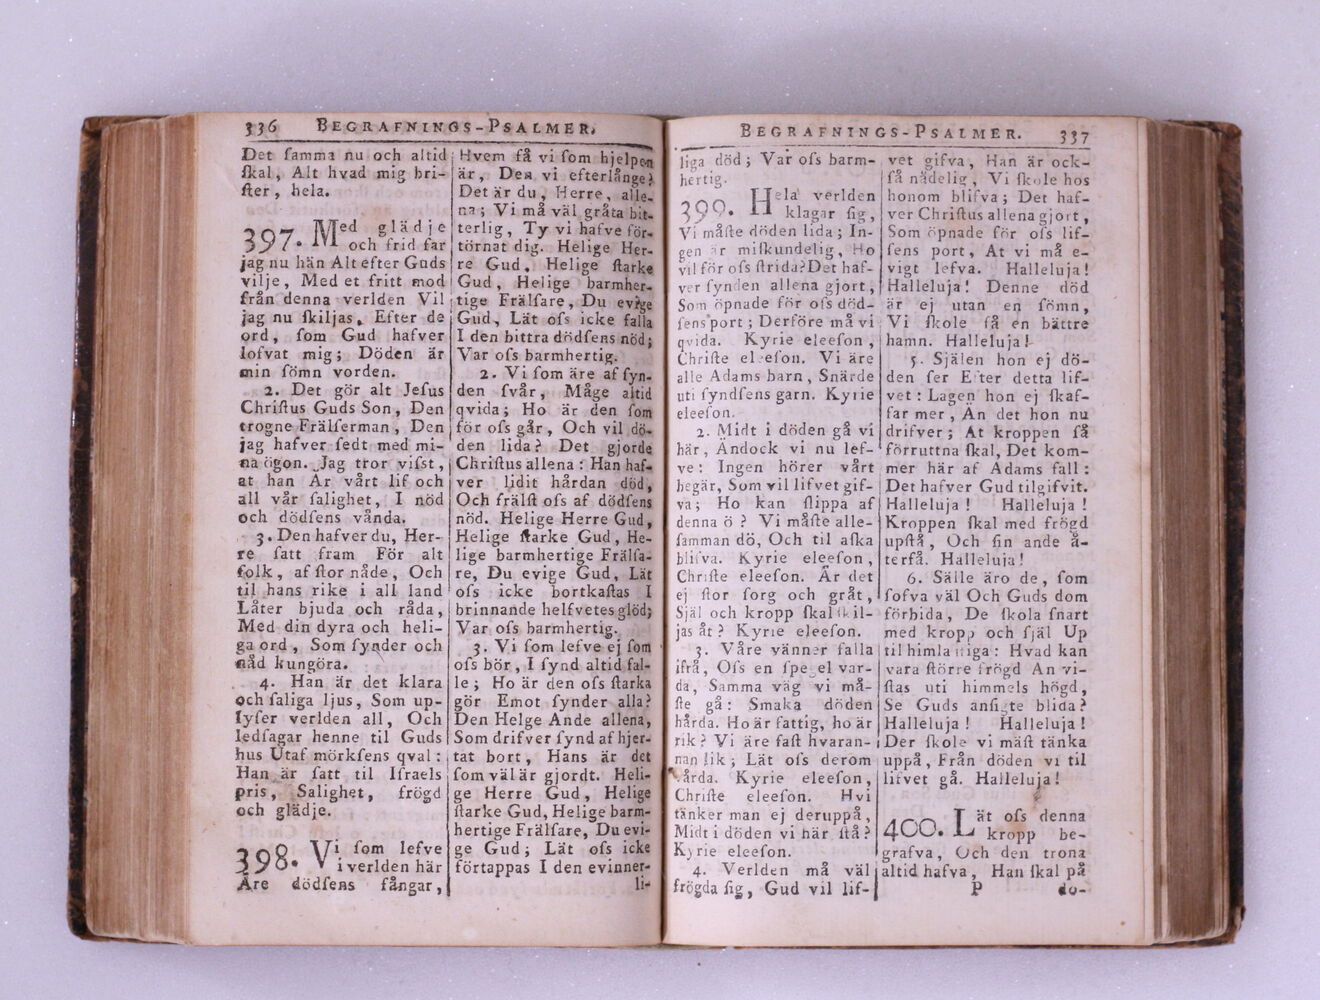 336 BEGRAFNINGS-PSALMER.
Det samma nu och altid
skal, Alt hvad mig bri-
ster, hela.
397. Med glädje
och frid far
jag nu hän Alt efter Guds
vilje, Med et fritt mod
från denna verlden Vil
jag nu skiljas, Efter de
ord, som Gud hafver
lofvat mig; Döden är
min sömn vorden.
2. Det gör alt Jesus
Christus Guds Son, Den
trogne Frälserman, Den
jag hafver sedt med mi-
na ögon. Jag tror visst,
at han Är vårt lif och
all vår salighet, I nöd
och dödsens vånda.
3. Den hafver du, Her-
re satt fram För alt
folk, af stor nåde, Och
til hans rike i all land
Låter bjuda och råda,
Med din dyra och heli-
ga ord, Som synder och
nåd kungöra.
4. Han är det klara
och saliga ljus, Som up-
lyser verlden all, Och
ledsagar henne til Guds
hus Utaf mörksens qval:
Han är satt til Israels
pris, Salighet, frögd
och glädje.
398. Vi som lefve
i verlden här
Äre dödsens fångar,
Hvem få vi som hjelpen
är, Den vi efterlänge?
Det är du, Herre, alle-
na; Vi må väl gråta bit-
terlig, Ty vi hafve för-
törnat dig. Helige Her-
re Gud, Helige starke
Gud, Helige barmher-
tige Frälsare, Du evige
Gud, Lät oss icke falla
I den bittra dödsens nöd;
Var oss barmhertig.
2. Vi som äre af syn-
den svår, Måge altid
qvida; Ho är den som
för oss går, Och vil dö-
den lida? Det gjorde
Christus allena: Han haf-
ver lidit hårdan död,
Och frälst oss af dödsens
nöd. Helige Herre Gud,
Helige starke Gud, He-
lige barmhertige Frälsa-
re, Du evige Gud, Lät
oss icke bortkastas I
brinnande helfvetes glöd;
Var oss barmhertig.
3. Vi som lefve ej som
oss bör, I synd altid fal-
le; Ho är den oss starka
gör Emot synder alla?
Den Helge Ande allena,
Som drifver synd af hjer-
tat bort, Hans är det
som väl är gjordt. Heli-
ge Herre Gud, Helige
starke Gud, Helige barm-
hertige Frälsare, Du evi-
ge Gud; Lät oss icke
förtappas I den evinner-
li-
BEGRAFNINGS-PSALMER. 337
liga död; Var oss barm-
hertig.
399. Hela verlden
klagar sig,
Vi måste döden lida; In-
gen är miskundelig, Ho
vil för oss strida? Det haf-
ver synden allena gjort,
Som öpnade för oss död-
sens port; Derföre må vi
qvida. Kyrie eleeson,
Christe eleeson. Vi äre
alle Adams barn, Snärde
uti syndsens garn. Kyrie
eleeson.
2. Midt i döden gå vi
här, Ändock vi nu lef-
ve: Ingen hörer vårt
begär, Som vil lifvet gif-
va; Ho kan slippa af
denna ö? Vi måste alle-
samman dö, Och til aska
blifva. Kyrie eleeson,
Christe eleeson. Är det
ej stor sorg och gråt,
Själ och kropp skal skil-
jas åt? Kyrie eleeson.
3. Våre vänner falla
ifrå, Oss en spegel var-
da, Samma väg vi må-
ste gå: Smaka döden
hårda. Ho är fattig, ho är
rik? Vi äre fast hvaran-
nan lik; Lät oss derom
vårda. Kyrie eleeson,
Christe eleeson. Hvi
tänker man ej deruppå,
Midt i döden vi här stå?
Kyrie eleeson.
4. Verlden må väl
frögda sig, Gud vil lif-
vet gifva, Han är ock-
så nådelig, Vi skole hos
honom blifva; Det haf-
ver Christus allena gjort,
Som öpnade för oss lif-
sens port, At vi må e-
vigt lefva. Halleluja!
Halleluja! Denne död
är ej utan en sömn,
Vi skole få en bättre
hamn. Halleluja!
5. Själen hon ej dö-
den ser Efter detta lif-
vet: Lagen hon ej skaf-
far mer, Än det hon nu
drifver; At kroppen så
förruttna skal, Det kom-
mer här af Adams fall:
Det hafver Gud tilgifvit.
Halleluja! Halleluja!
Kroppen skal med frögd
upstå, Och sin ande å-
terfå. Halleluja!
6. Sälle äro de, som
sofva väl Och Guds dom
förbida, De skola snart
med kropp och själ Up
til himla stiga: Hvad kan
vara större frögd Än vi-
stas uti himmels högd,
Se Guds ansigte blida?
Halleluja! Halleluja!
Der skole vi mäst tänka
uppå, Från döden vi til
lifvet gå. Halleluja!
400. Lät oss denna
kropp be-
grafva, Och den trona
altid hafva, Han skal på
P do-